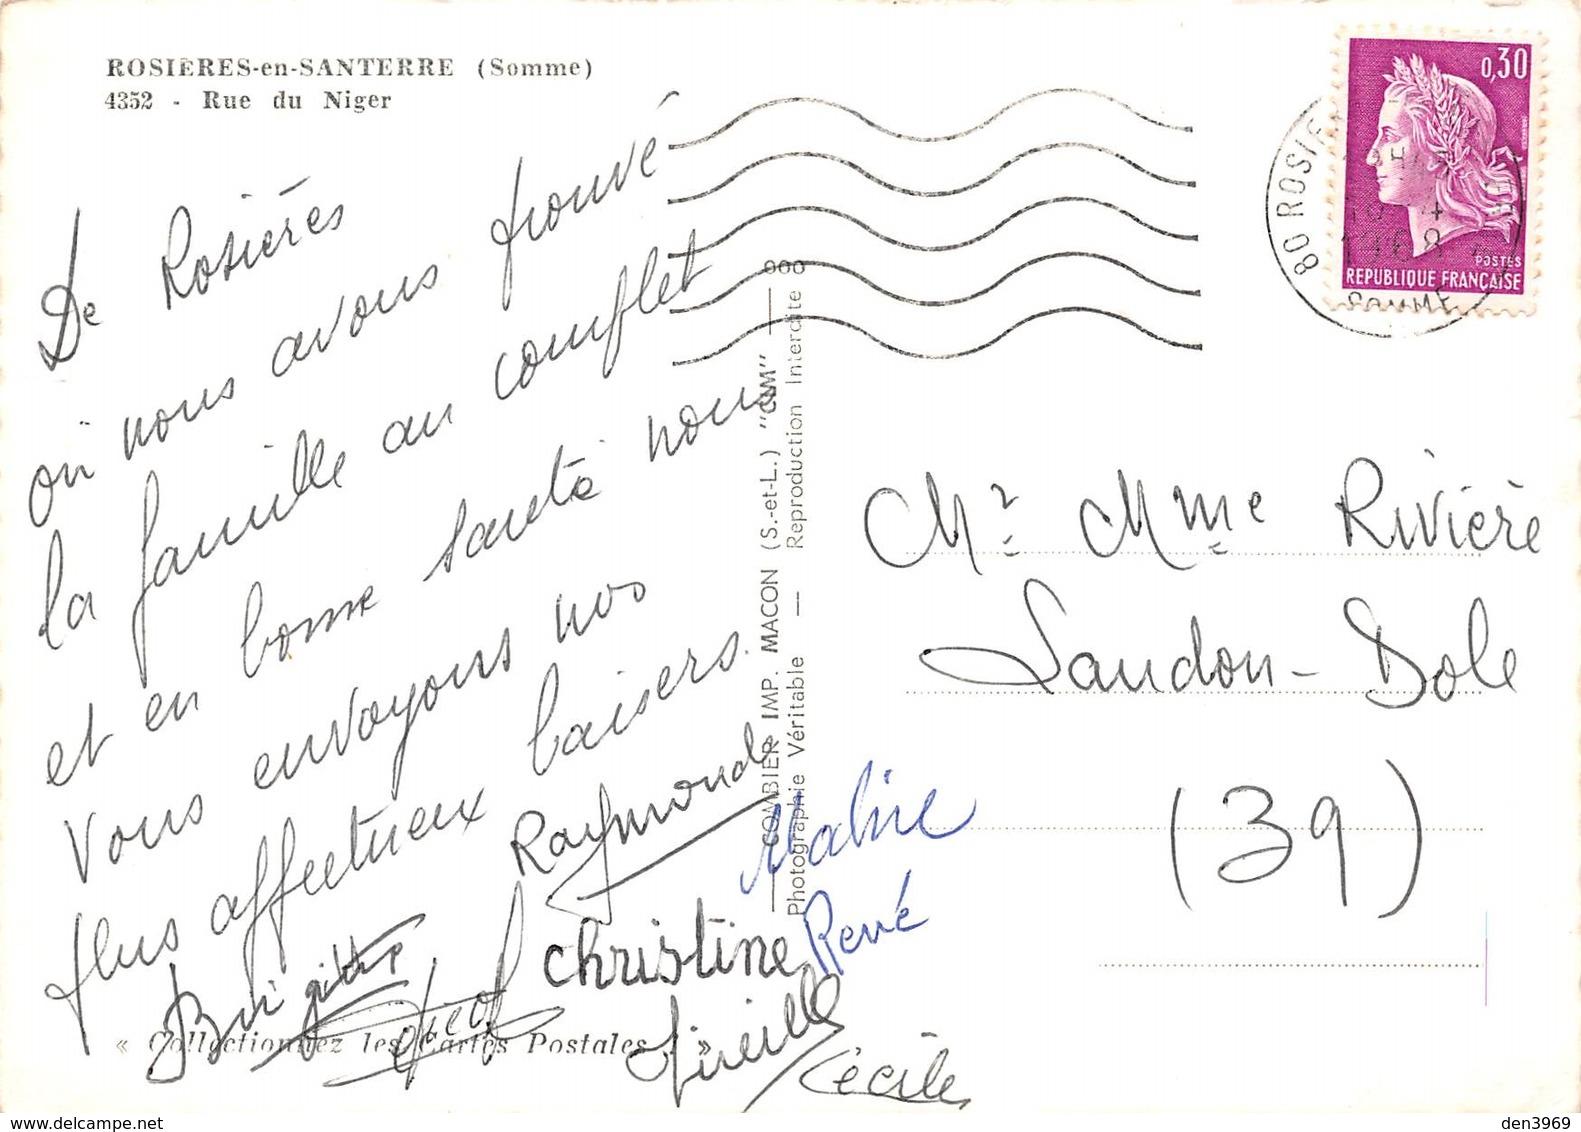 ROSIÈRES-en-SANTERRE (Somme)
4352 - Rue du Niger
De Rosières
où nous avons trouvé
la famille au complet
et en bonne santé nous
vous envoyons nos
plus affectueux baisers.
Raymonde
Brigitte
Christine
René
Mireille
Cécile
« Collectionnez les Cartes Postales »
COMBIER IMP. MACON (S.-et-L.) "CIM"
Photographie Véritable — Reproduction Interdite
0,30
POSTES
REPUBLIQUE FRANÇAISE
80 ROSIE
1968
SOMME
Mr. Mme Rivière
Landon-Dole
(39)
den3969